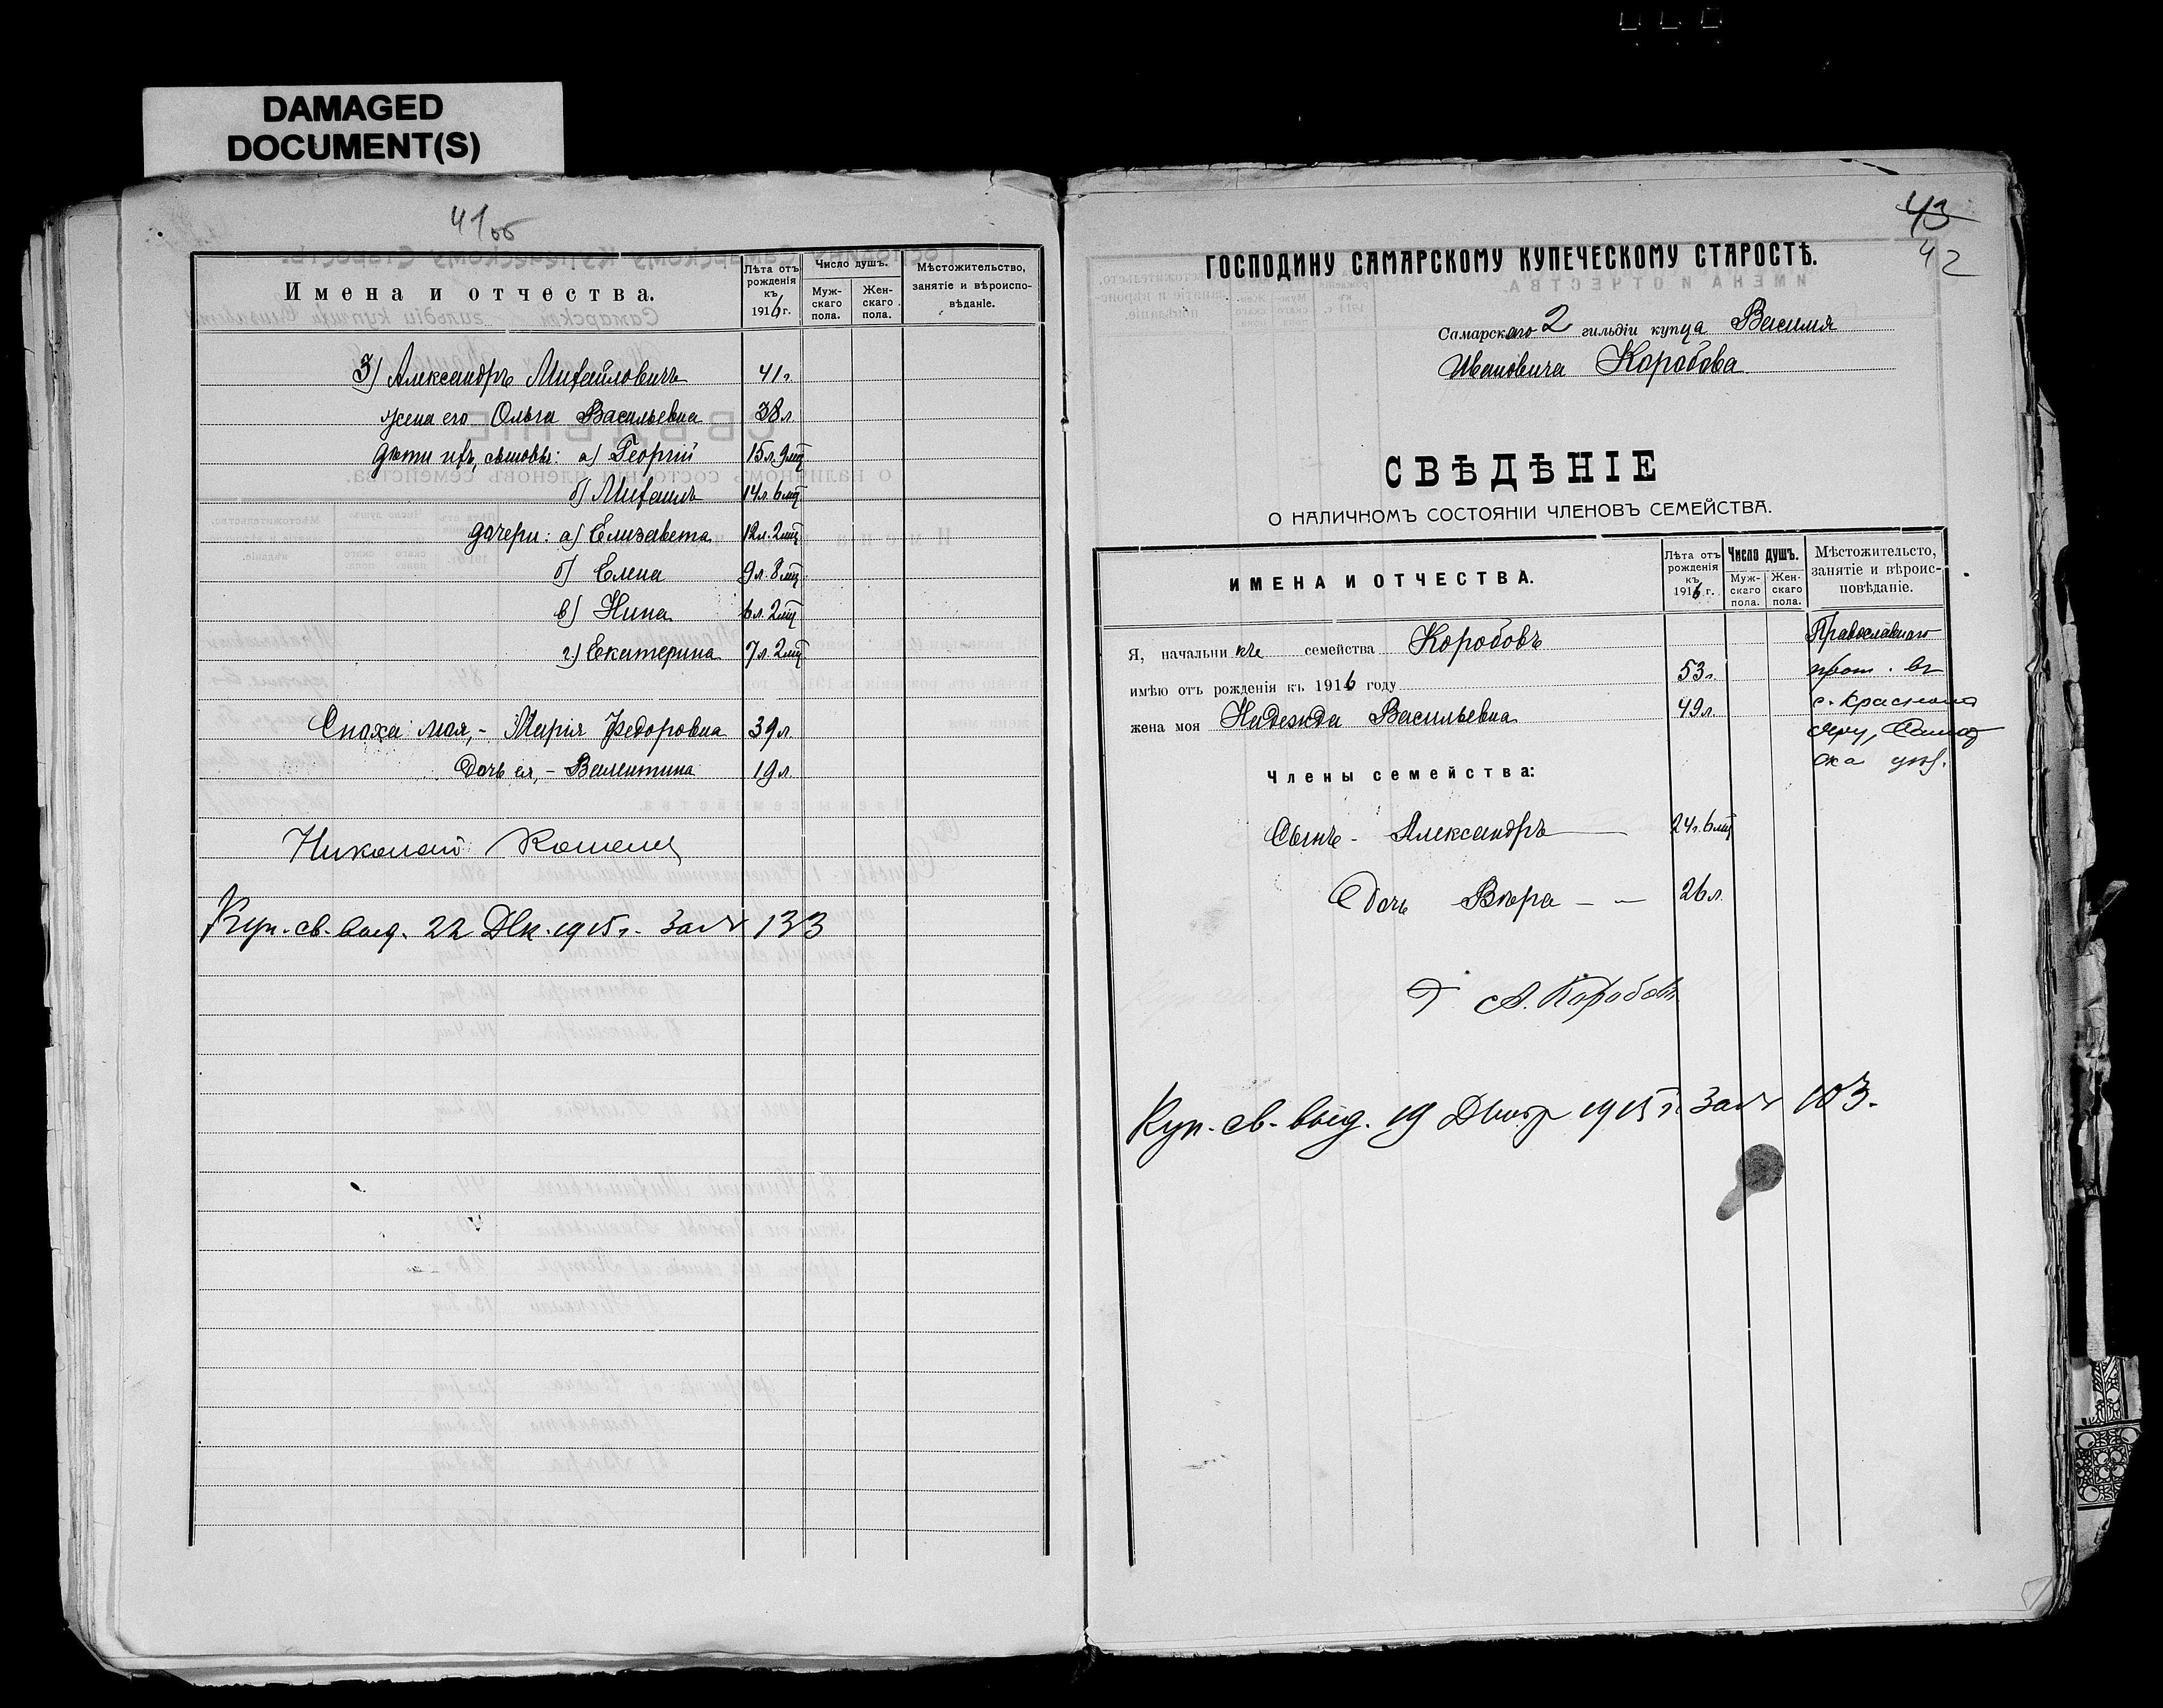 DAMAGED
DOCUMENT(S)
41об
Имена и отчества.
Лѣта отъ рожденія къ 1916 г.
Число душъ.
Муж-скаго пола.
Жен-скаго пола.
Мѣстожительство, занятіе и вѣроиспо-вѣданіе.
3) Александръ Михайловичъ 41г.
жена его Ольга Васильевна 38 л.
дѣти ихъ, сыновья: а) Георгій 15 л. 9 мц
б) Михаилъ 14 л 6 мц
дочери: а) Елизавета 12 л. 2 мц
б) Елена 9 л. 8 мц.
в) Нина 6 л. 2 мц
г) Екатерина 7 л. 2 мц
Сноха моя, - Марія Федоровна 39 л.
Дочь ея, - Валентина 19 л.
Николай
Куп. св. выд. 22 Дек. 1915 г. За № 133
43
42
ГОСПОДИНУ САМАРСКОМУ КУПЕЧЕСКОМУ СТАРОСТѢ.
Самарскаго 2 гильдіи купца Василія
Ивановича Коробова
СВѢДѢНІЕ
О НАЛИЧНОМЪ СОСТОЯНІИ ЧЛЕНОВЪ СЕМЕЙСТВА.
ИМЕНА И ОТЧЕСТВА.
Лѣта отъ рожденія къ 1916 г.
Число душъ.
Муж-скаго пола.
Жен-скаго пола.
Мѣстожительсто, занятіе и вѣроис-повѣданіе.
Я, начальникъ семейства Коробовъ
имѣю отъ рожденія къ 1916 году 53 г.
жена моя Надежда Васильевна 49 л.
Православнаго
прож. въ
с. Красномъ
Яру, Самар
ска уѣз.
Члены семейства:
Сынъ - Александръ 24 г. 6 мц
Дочь Вѣра - - 26 л.
А. Коробовъ
Куп. св. выд. 19 Декбр 1915 г. За № 103.